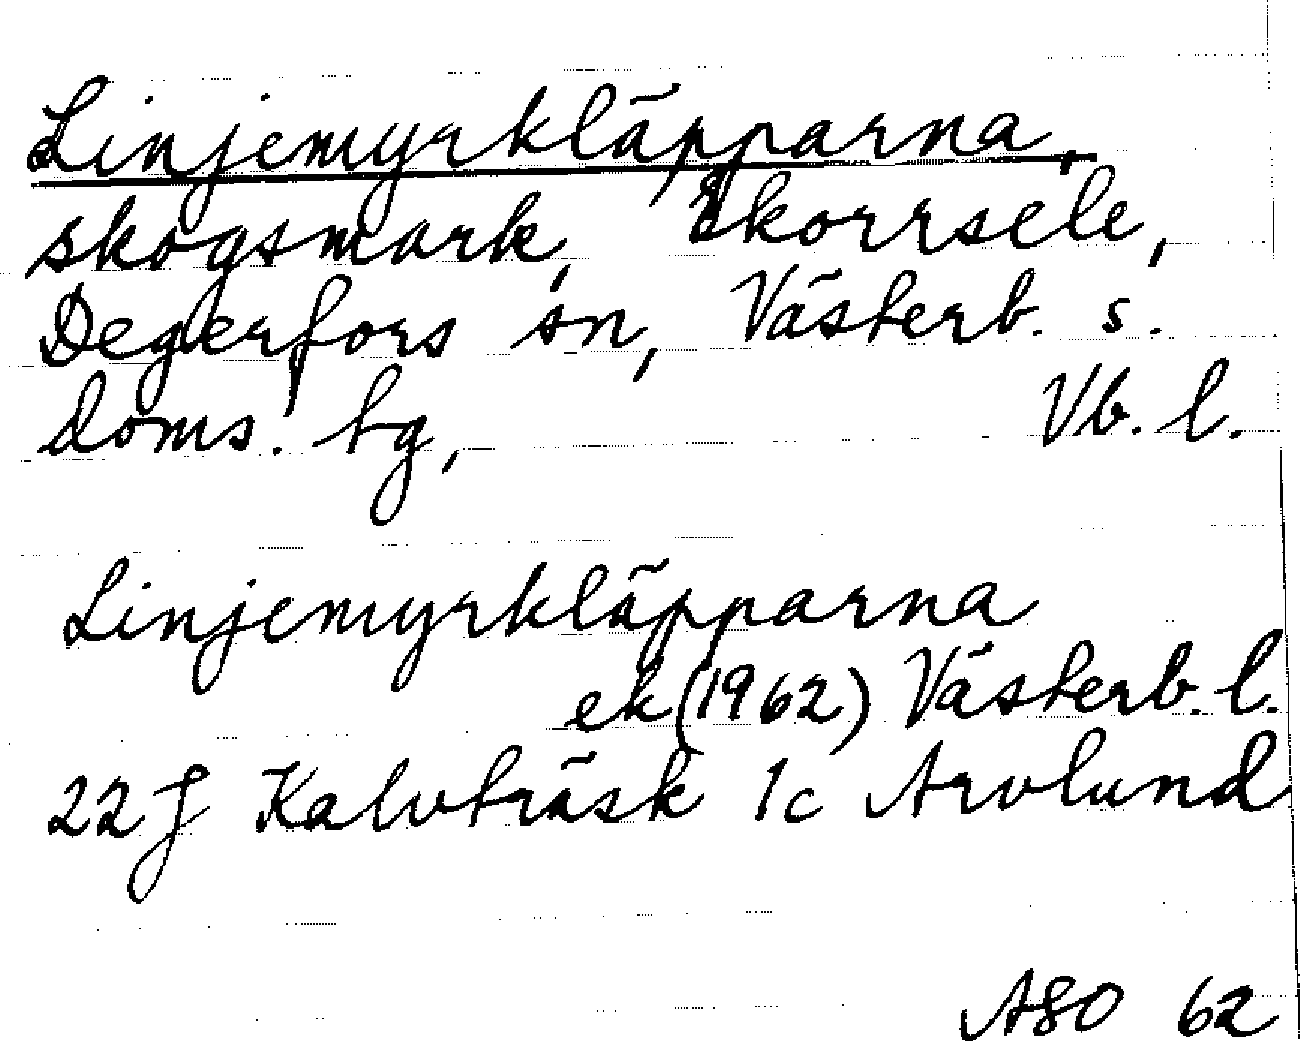 Linjemyrkläpparna,
skogsmark, Ekorrsele,
Degerfors sn, Västerb. s.
doms. tg, Vb. l.
Linjemyrkläpparna
ek (1962) Västerb. l.
22 J Kalvträsk 1c Arvlund
ASO 62